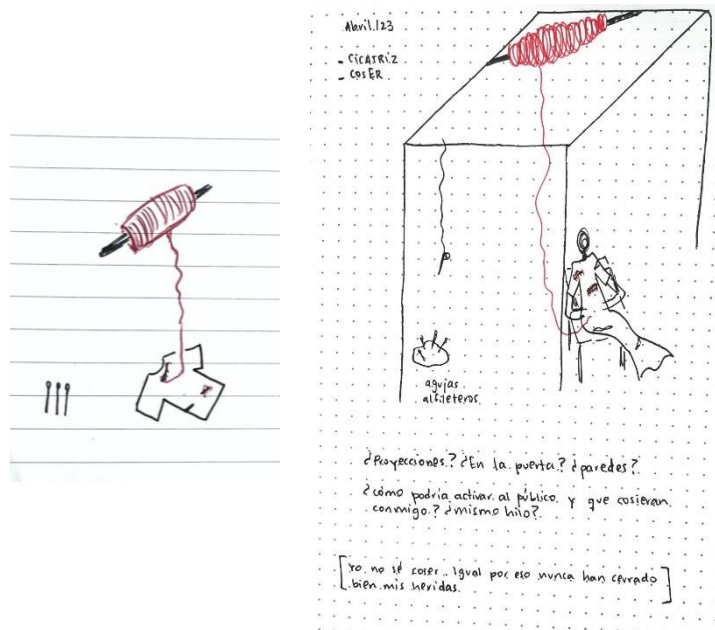 Abril./23
- CICATRIZ
- COSER
agujas
alfileteros.
¿Proyecciones.? ¿En la puerta? ¿paredes?
¿cómo podría activar al público y que cosieran
conmigo.? ¿mismo hilo?.
[Yo no sé coser. Igual por eso nunca han cerrado
bien mis heridas.]